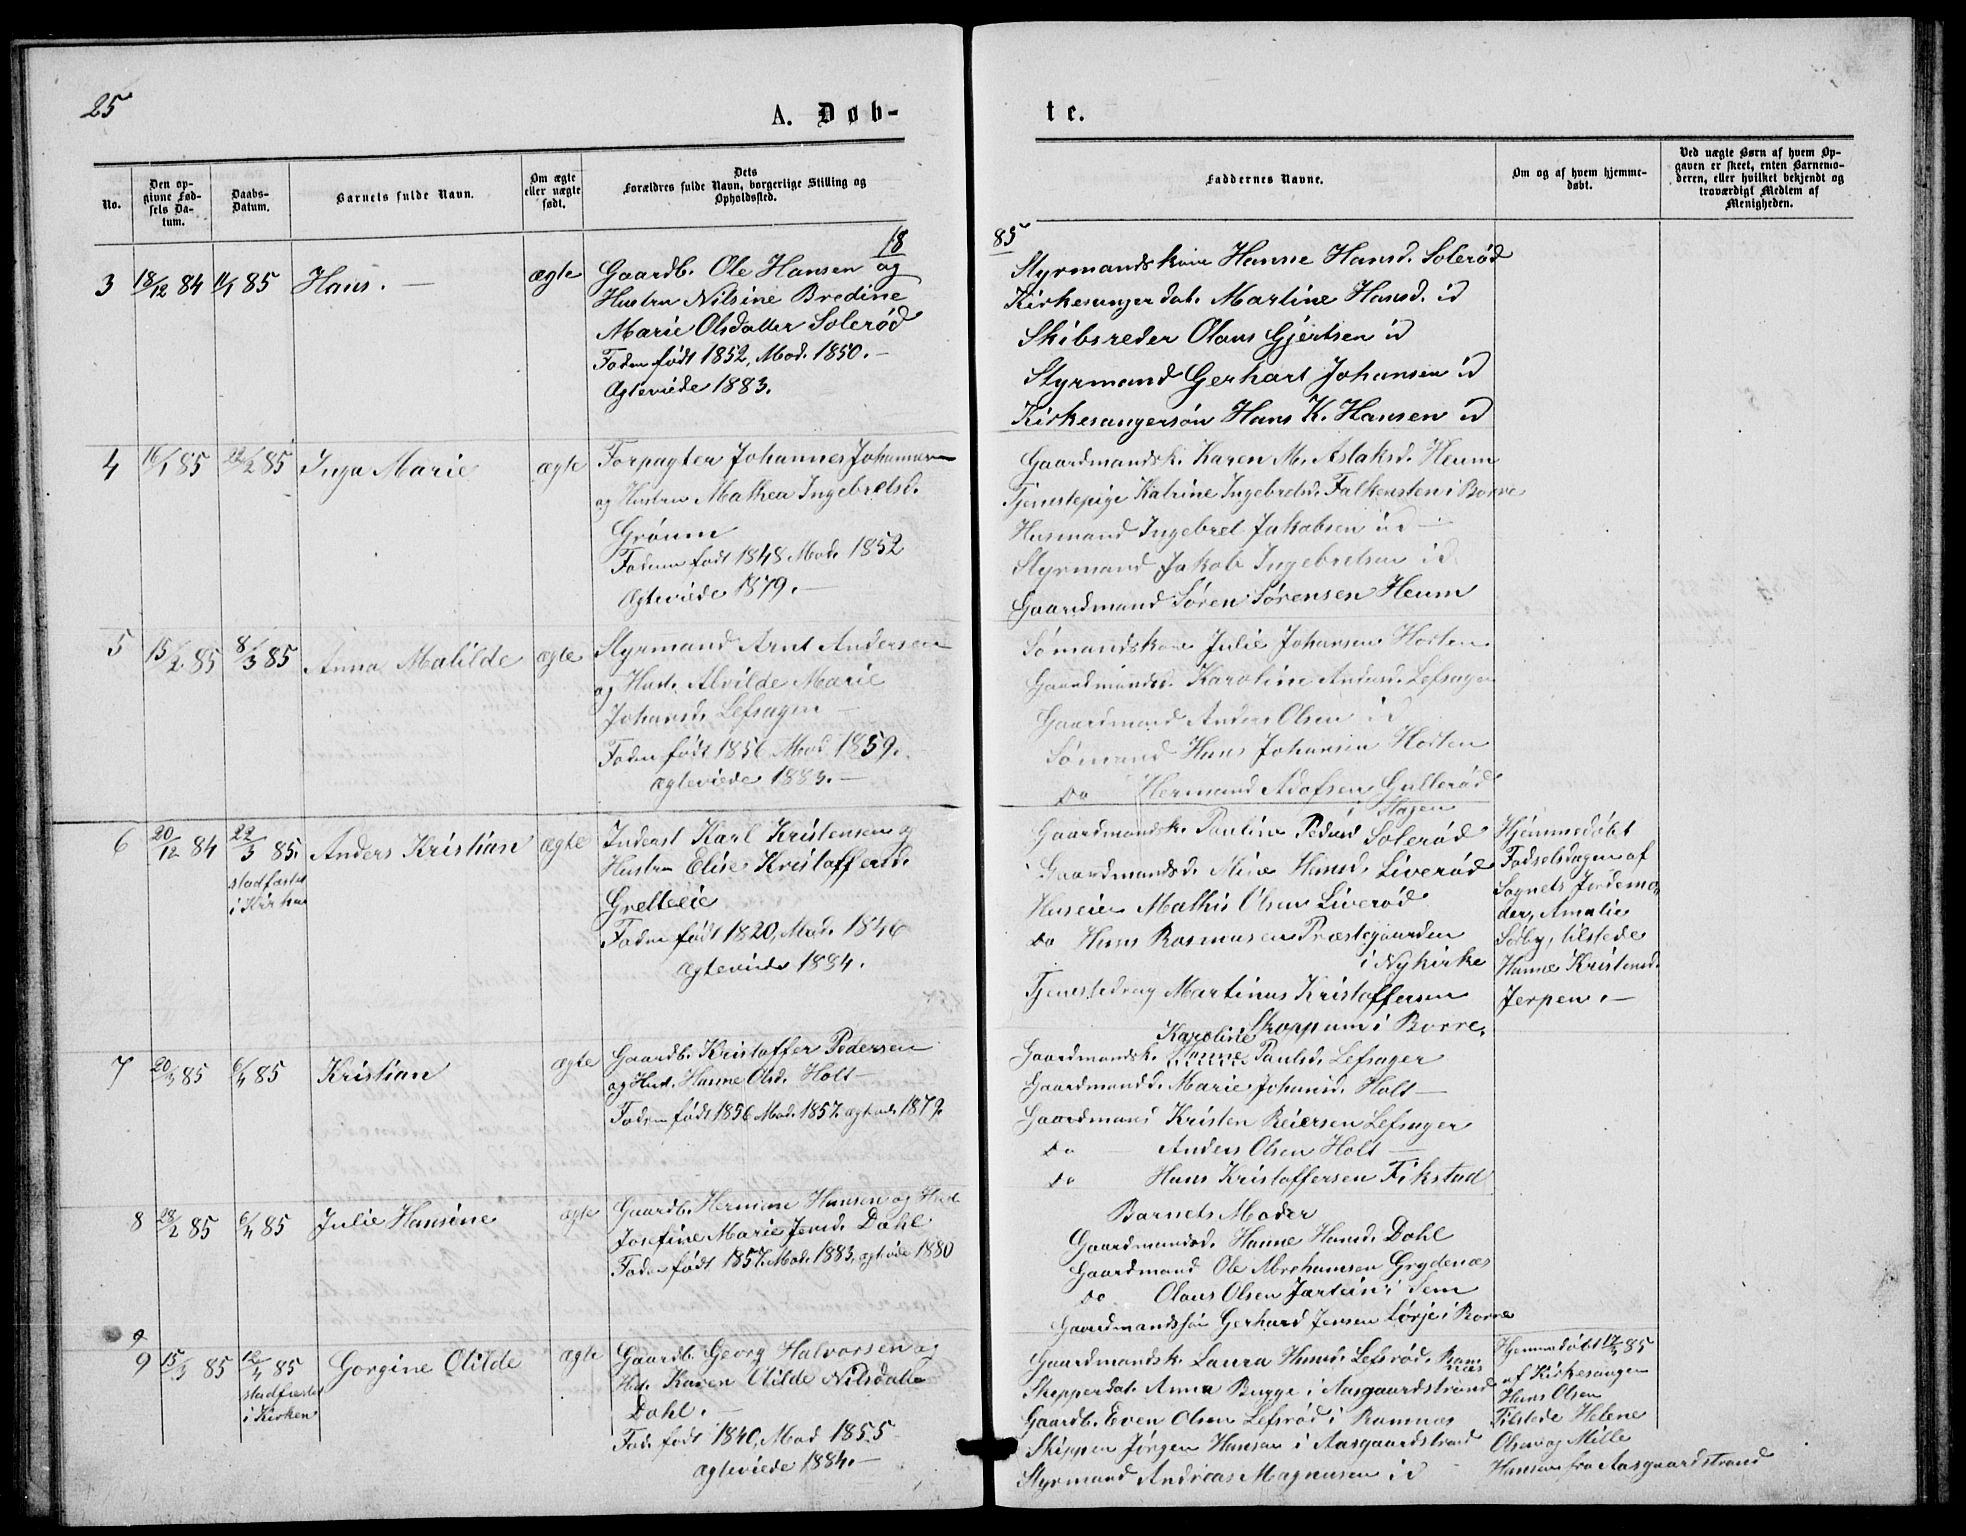 25
A. Døb-
te.
No.
Den opgivne Fødsels Datum.
Daabs-Datum.
Barnets fulde Navn.
Om ægte eller uægte født.
Dets Forældres fulde Navn, borgerlige Stilling og Opholdssted.
Faddernes Navne.
Om og af hvem hjemmedøbt.
Ved uægte Børn af hvem Opgaven er skeet, enten Barnemoderen, eller hvilket bekjendt og troværdigt Medlem af Menigheden.
18
85
3 18/12 84 11/1 85 Hans. — ægte
Gaardb. Ole Hansen og
Hustru Nilsine Bredine
Marie Olsdatter Solerød
Faden født 1852, Mod. 1850. —
Ægteviede 1883.
Styrmandskone Hanne Hansd. Solerød
Kirkesangerdat. Martine Hansd. id
Skibsreder Olaus Gjertsen id
Styrmand Gerhart Johansen id
Kirkesangersøn Hans K. Hansen id
4 16/1 85 22/2 85 Inga Marie ægte
Forpagter Johannes Johannesen
og Hustru Mathea Ingebretsd.
Grøum
Faderen født 1848 Mod. 1852
Ægteviede 1879. —
Gaardmandsk. Karen M. Aslaksd. Heum
Tjenestepige Katrine Ingebretsd. Falkensten i Borre
Husmand Ingebret Jakobsen id —
Styrmand Jakob Ingebretsen id
Gaardmand Søren Sørensen Heum
5 15/2 85 8/3 85 Anna Matilde ægte
Styrmand Arnt Andersen
og Hust. Alvilde Marie
Johansd. Lefsagen —
Faden født 1856 Mod. 1859.
Ægteviede 1883. —
Sømandskone Julie Johansen Horten
Gaardmandsd. Karoline Andersd. Lefsagen
Gaardmand Anders Olsen id
Sømand Hans Johansen Horten
Do Hermand Adofsen Gullerød
i Slagen
6 20/12 84 22/3 85. Anders Kristian ægte
stadfæstet
i Kirken
Inderst Karl Kristensen og
Hustru Elise Kristoffersd.
Gretteeie
Faden født 1820, Mod. 1846
Ægteviede 1884.
Gaardmandsk. Pauline Pedersd Solerød
Gaardmandsd. Mine Hansd. Liverød
Huseier Mathis Olsen Liverød
Do Hans Rasmusen Præstegaarden
i Nykirke
Tjenestedreng Martinus Kristoffersen
Skoppum i Borre.
Hjemmedøbt
Fødselsdagen af
Sognets Jordemo-
der, Amalie
Søby, tilstede
Hanne Kristensd.
Jerpen. —
7 20/3 85 6/4 85 Kristian ægte
Gaardb. Kristoffer Pedersen
og Hust. Hanne Olsd. Holt —
Faden født 1856 Mod. 1857. ægtvde. 1879.
Karoline
Gaardmandsk. Hanne Paulsd. Lefsager
Gaardmandd. Marie Johansd. Holt —
Gaardmand Kristen Reiersen Lefsager
Do — Anders Olsen Holt —
Do Hans Kristoffersen Fikstad
8 28/2 85 6/4 85 Julie Hansine ægte
Gaardb. Herman Hansen og Hust
Josefine Marie Jensd. Dahl
Faden født 1857. Mod. 1883, ægtvde 1880
Barnets Moder
Gaardmandsd. Hanne Hansd. Dahl
Gaardmand Ole Abrahamsen Grydenæs
Do Olaus Olsen Jartein i Sem
Gaardmandsøn Gerhard Jensen Lørje i Borre
9
9 15/3 85 12/4 85 Gorgine Otilde ægte
stadfæstet
i Kirken
Gaardb. Georg Halvorsen og
Hust. Karen Otilde Nilsdatter
Dahl. —
Fad. født 1840, Mod 1855
Ægteviede 1884. —
Gaardmandsk. Laura Hansd. Lefsrød, Ramnæs
Skipperdat. Anna Bugge i Aasgaardstrand
Gaardb. Even Olsen Lefsrød i Ramnæs
Skipper Jørgen Hansen i Aasgaardstrand
Styrmand Andreas Magnusen id
Hjemmedøbt 17/3 85
af Kirkesanger
Hans Olsen
Tilstede Helene
Olsen og Mille
Hansen fra Aasgaardstrand